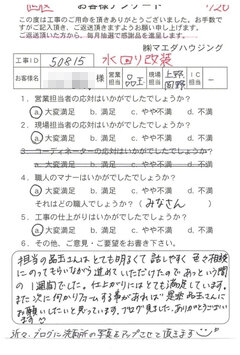 お客様アンケート
この度は工事のご用命を頂きありがとうございました。お手数で
すがご記入頂き、ご返送頂きますようお願い申し上げます。
ご返送頂いた方から、毎月抽選で感謝品を進呈します。
㈱マエダハウジング
工事ID 50815 水回り改装
お客様名 様 営業担当 品工 現場担当 IC担当
1. 営業担当者の応対はいかがでしたでしょうか?
a)大変満足 b. 満足 c. やや満足 d. 不満
2. 現場担当者の応対はいかがでしたでしょうか?
a)大変満足 b. 満足 c. やや満足 d. 不満
3. コーディネーターの応対はいかがでしたでしょうか?
a. 大変満足 b. 満足 c. やや満足 d. 不満
4. 職人のマナーはいかがでしたでしょうか?
a)大変満足 b. 満足 c. やや満足 d. 不満
それはどの職人でしょうか?(みなさん)
5. 工事の仕上がりはいかがでしたでしょうか?
a)大変満足 b. 満足 c. やや満足 d. 不満
6. その他、ご意見・ご要望をお書き下さい。
担当の品工さんはとても明るくて話しやすく色々相談
にのってもらいながら進めていただけたのであっという間
の1週間でした。仕上がりにはとても満足しています。
また次に何かリフォームする事があれば是非品工さんに
お願いしたいと思っています。ブログ見ました。ありがとうござい
ます
近々、ブログに洗面所の写真をアップさせて頂きます